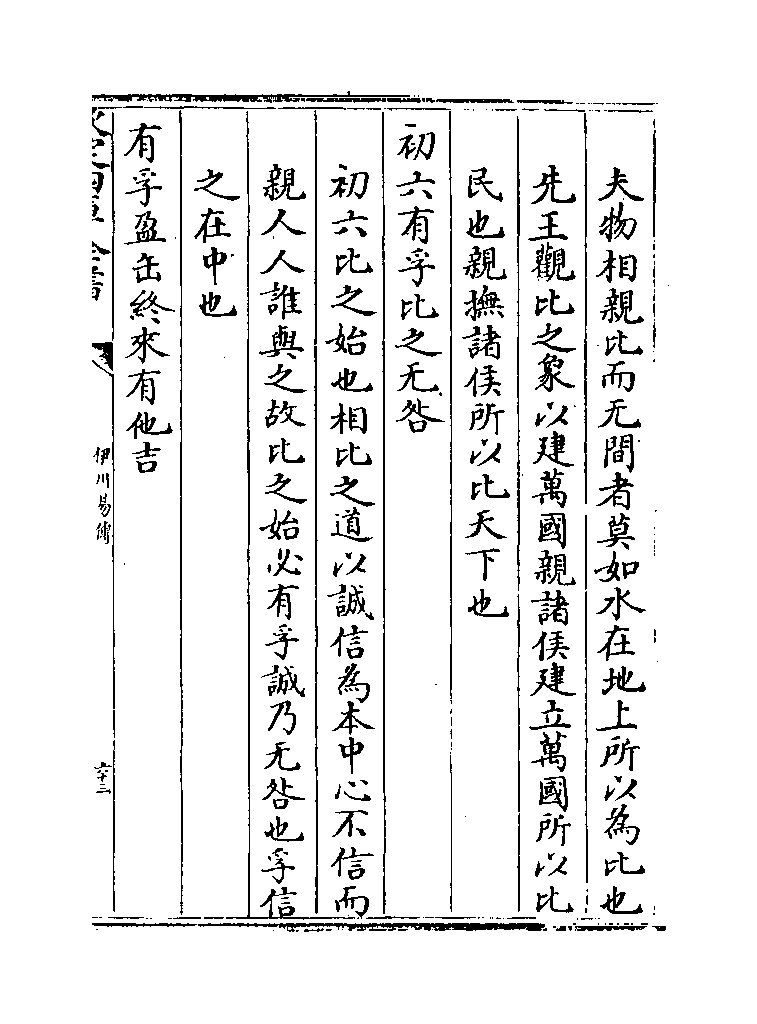 夫物相親比而无間者莫如水在地上所以為比也
先王觀比之象以建萬國親諸侯建立萬國所以比
民也親撫諸侯所以比天下也
初六有孚比之无咎
初六比之始也相比之道以誠信為本中心不信而
親人人誰與之故比之始必有孚誠乃无咎也孚信
之在中也
有孚盈缶終來有他吉
伊川易傳
六十三